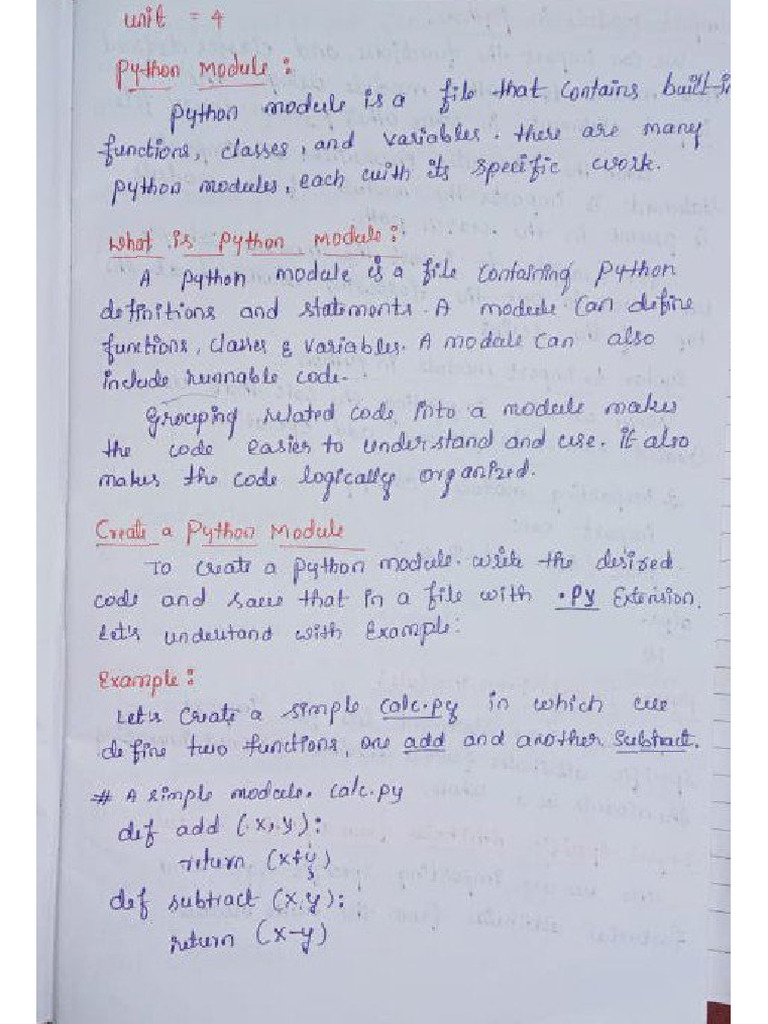 unit = 4
Python Module:
Python module is a file that contains built-in
functions, classes, and variables. there are many
python modules, each with its specific work.
What is Python Module:
A Python module is a file containing Python
definitions and statements. A module can define
functions, classes & variables. A module can also
include runnable code.
Grouping related code into a module makes
the code easier to understand and use. it also
makes the code logically organized.
Create a Python Module
To create a python module. write the desired
code and save that in a file with .py Extension.
Let's understand with Example:
Example:
Let's create a simple calc.py in which we
define two functions, one add and another subtract.
# A simple module, calc.py
def add (x,y):
return (x+y)
def subtract (x,y):
return (x-y)